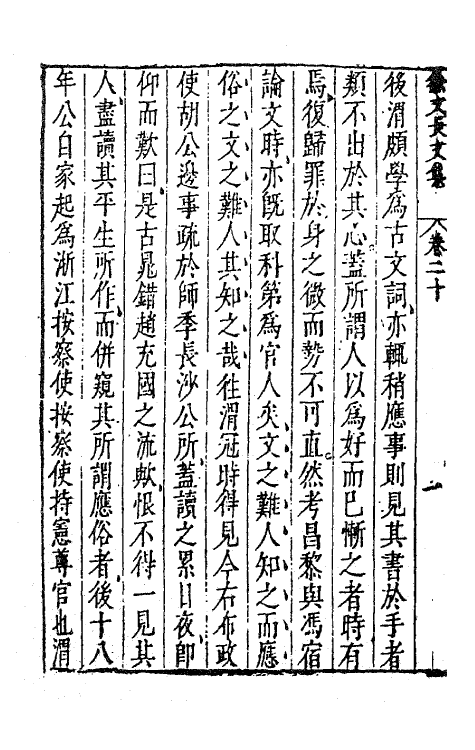 徐文長文集 卷二十 一
後渭頗學爲古文詞亦輒稍應事則見其書於手者
類不出於其心蓋所謂人以爲好而已慚之者時有
焉復歸罪於身之微而勢不可直然考昌黎與馮宿
論文時亦旣取科第爲官人矣文之難人知之而應
俗之文之難人其知之哉往渭冠時得見今右布政
使胡公邊事疏於師季長沙公所蓋讀之累日夜卽
仰而歎曰是古晁錯趙充國之流歟恨不得一見其
人盡讀其平生所作而併窺其所謂應俗者後十八
年公自家起爲浙江按察使按察使持憲尊官也渭